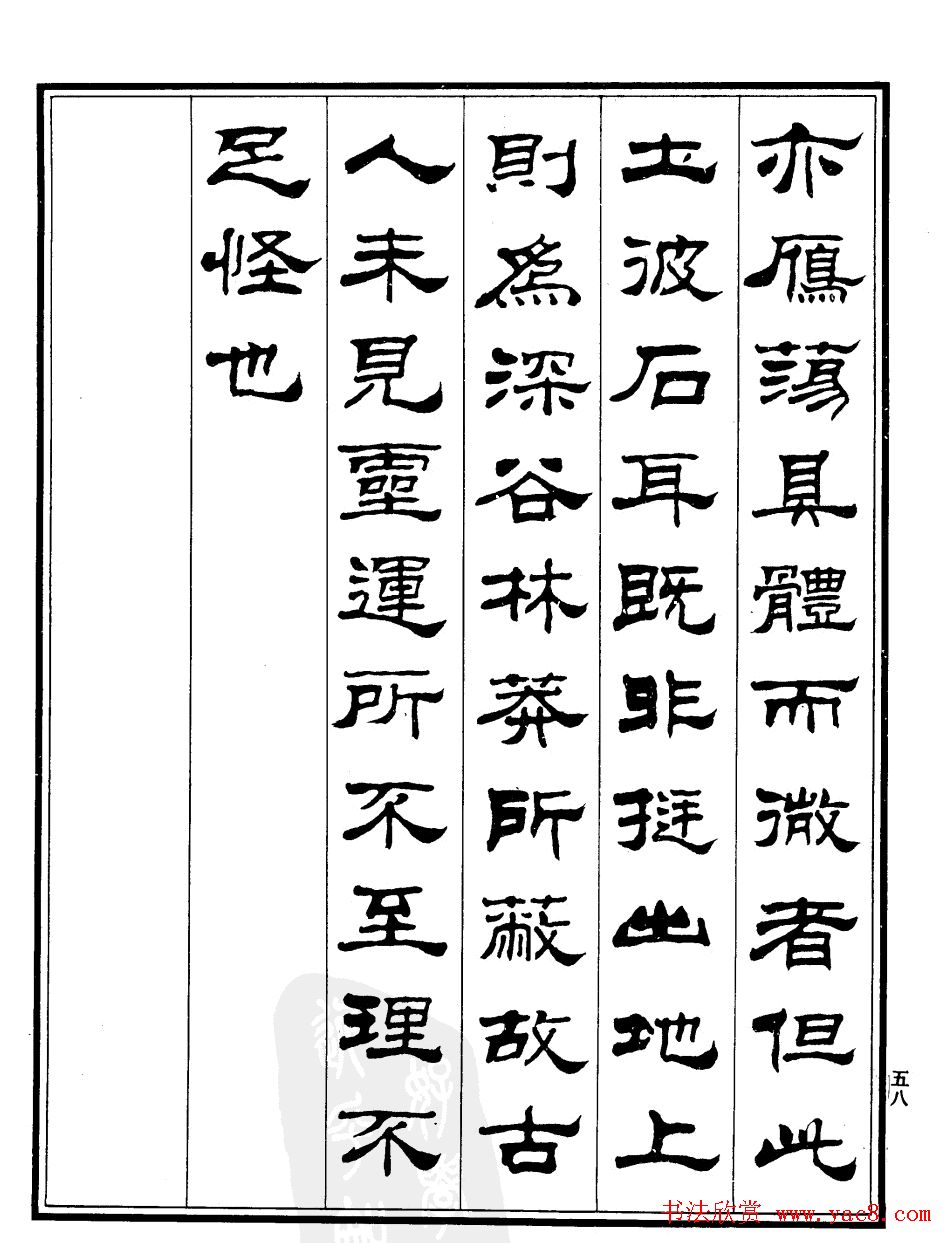 亦鴈蕩具體而微者但此
土彼石耳既非挺出地上
則爲深谷林莽所蔽故古
人未見靈運所不至理不
足怪也
五八
书法欣赏 www.yac8.com